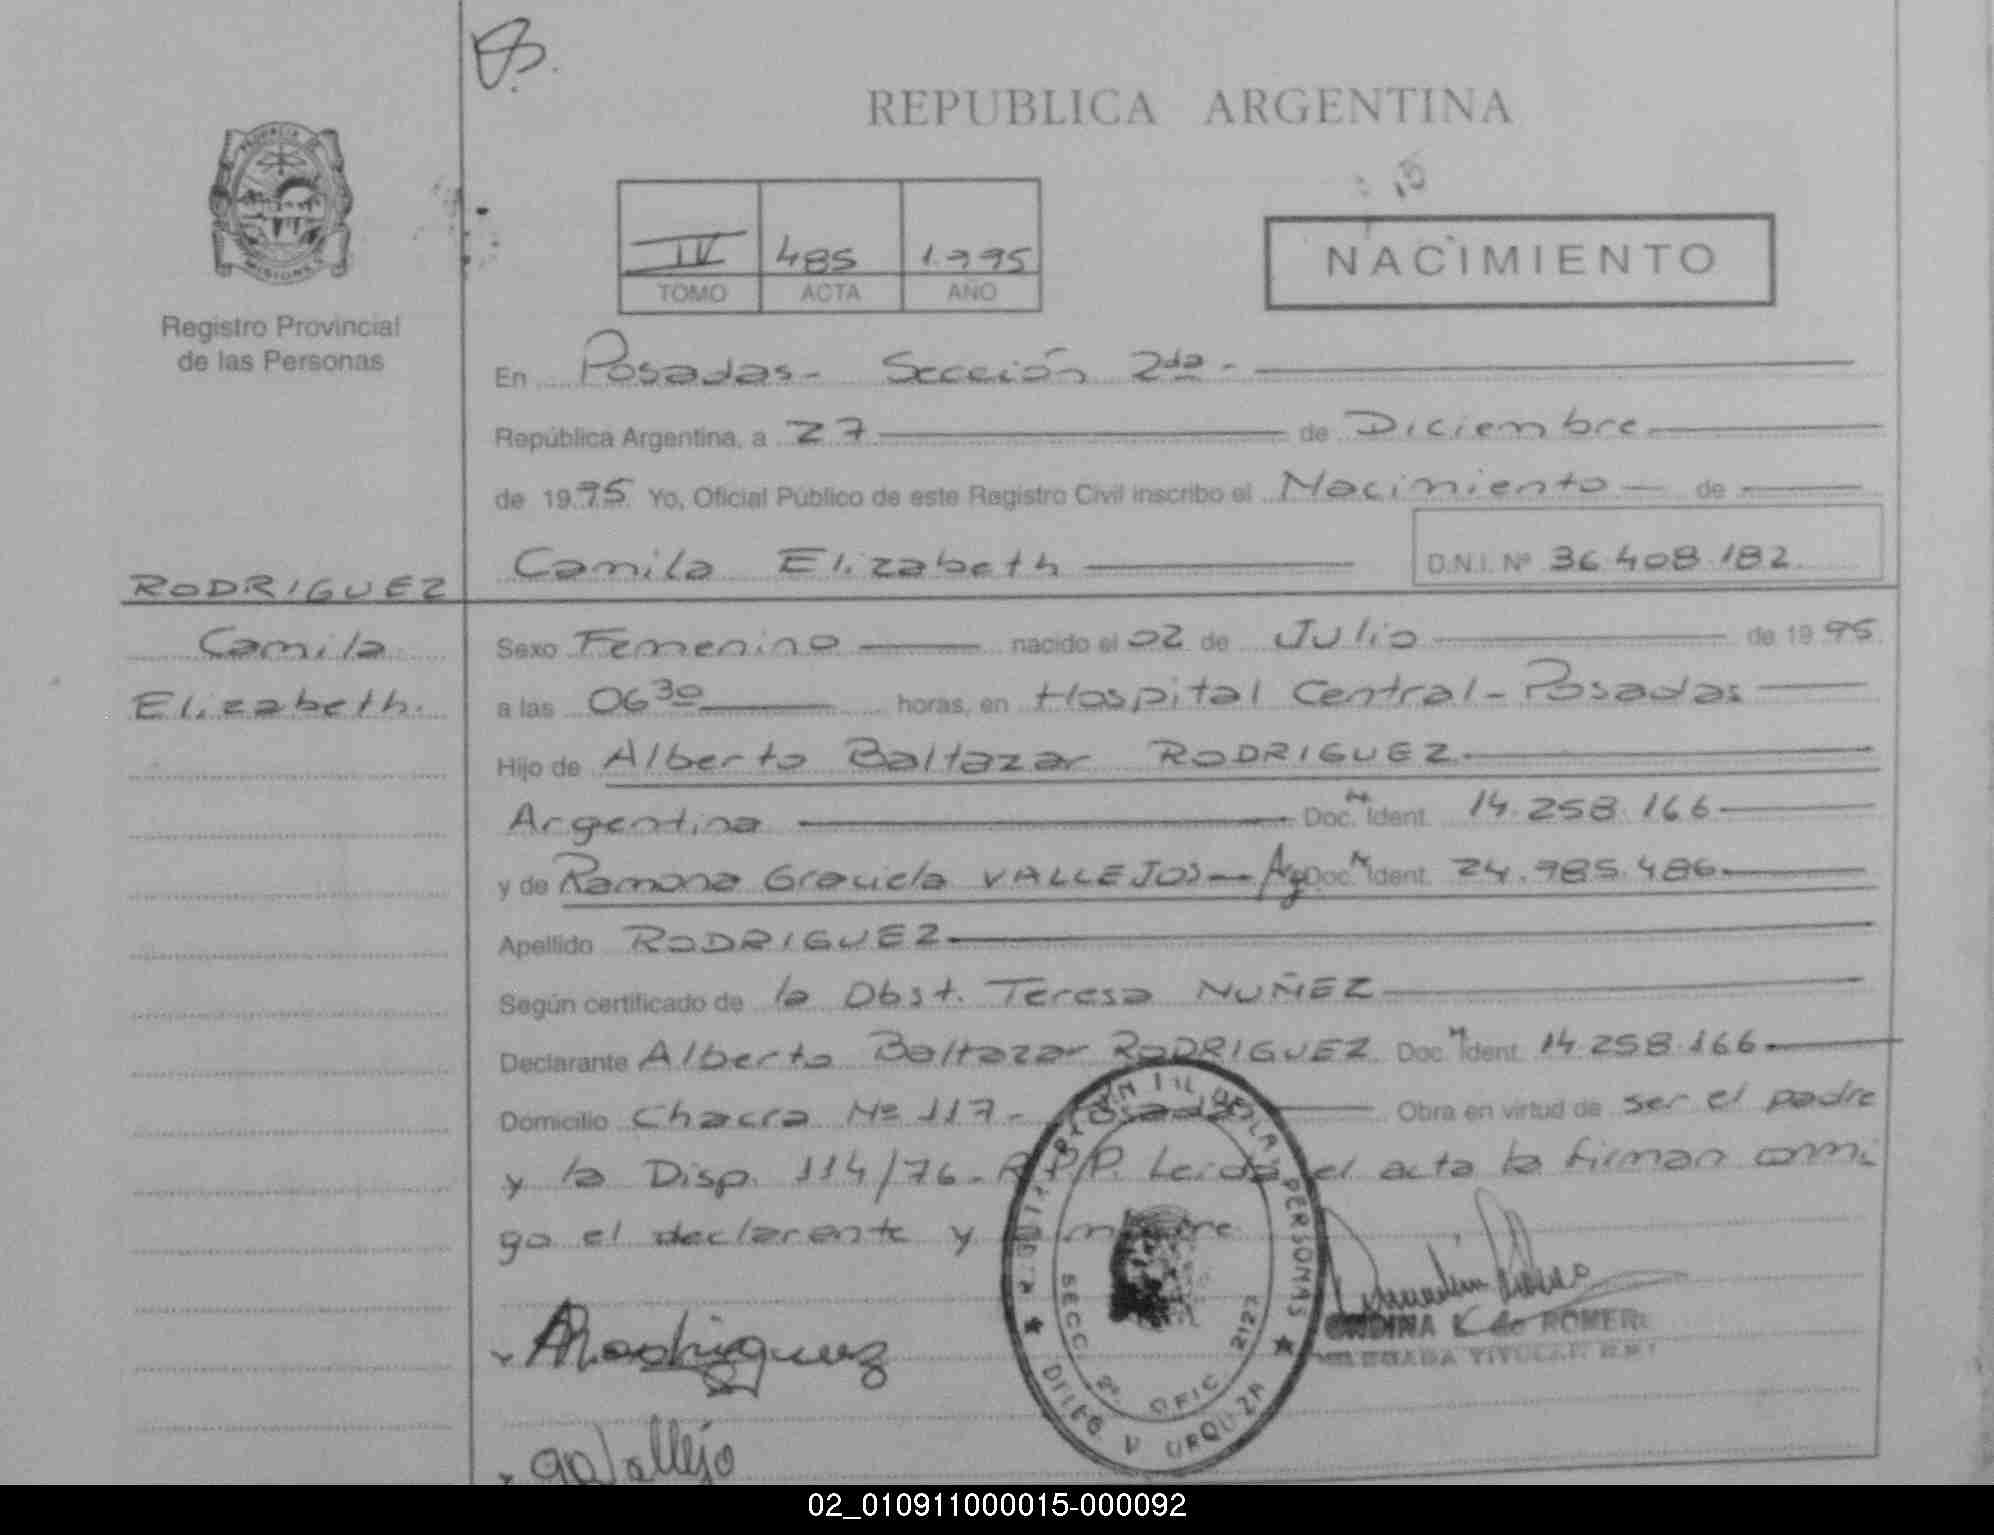 REPUBLICA ARGENTINA
PROVINCIA DE
MISIONES
Registro Provincial
de las Personas
IV 485 1.995
TOMO ACTA AÑO
NACIMIENTO
En Posadas- Sección 2da-
República Argentina, a 27 de Diciembre
de 1995 Yo, Oficial Público de este Registro Civil inscribo el Nacimiento de
Camila Elizabeth D.N.I. Nº 36.408.182.
RODRIGUEZ
Camila
Elizabeth.
Sexo Femenino nacido el 02 de Julio de 1995
a las 06 30 horas, en Hospital Central - Posadas
Hijo de Alberto Baltazar RODRIGUEZ
Argentina Doc. Ident. 14.258.166
y de Ramona Graciela VALLEJOS Arg Doc. Ident. 24.985.486
Apellido RODRIGUEZ
Según certificado de la Obst. Teresa NUÑEZ
Declarante Alberto Baltazar RODRIGUEZ Doc. Ident. 14.258.166
Domicilio Chacra Nº 117- Posadas Obra en virtud de ser el padre
y la Disp. 114/76- R.P.P. Leída el acta la firman conmi
go el declarante y madre
ARodriguez
SECC. 2ª OFIC. 2127
DELEG V URQUIZA
PERSONAS
ONDINA K de ROMERO
DELEGADA TITULAR
02_010911000015-000092